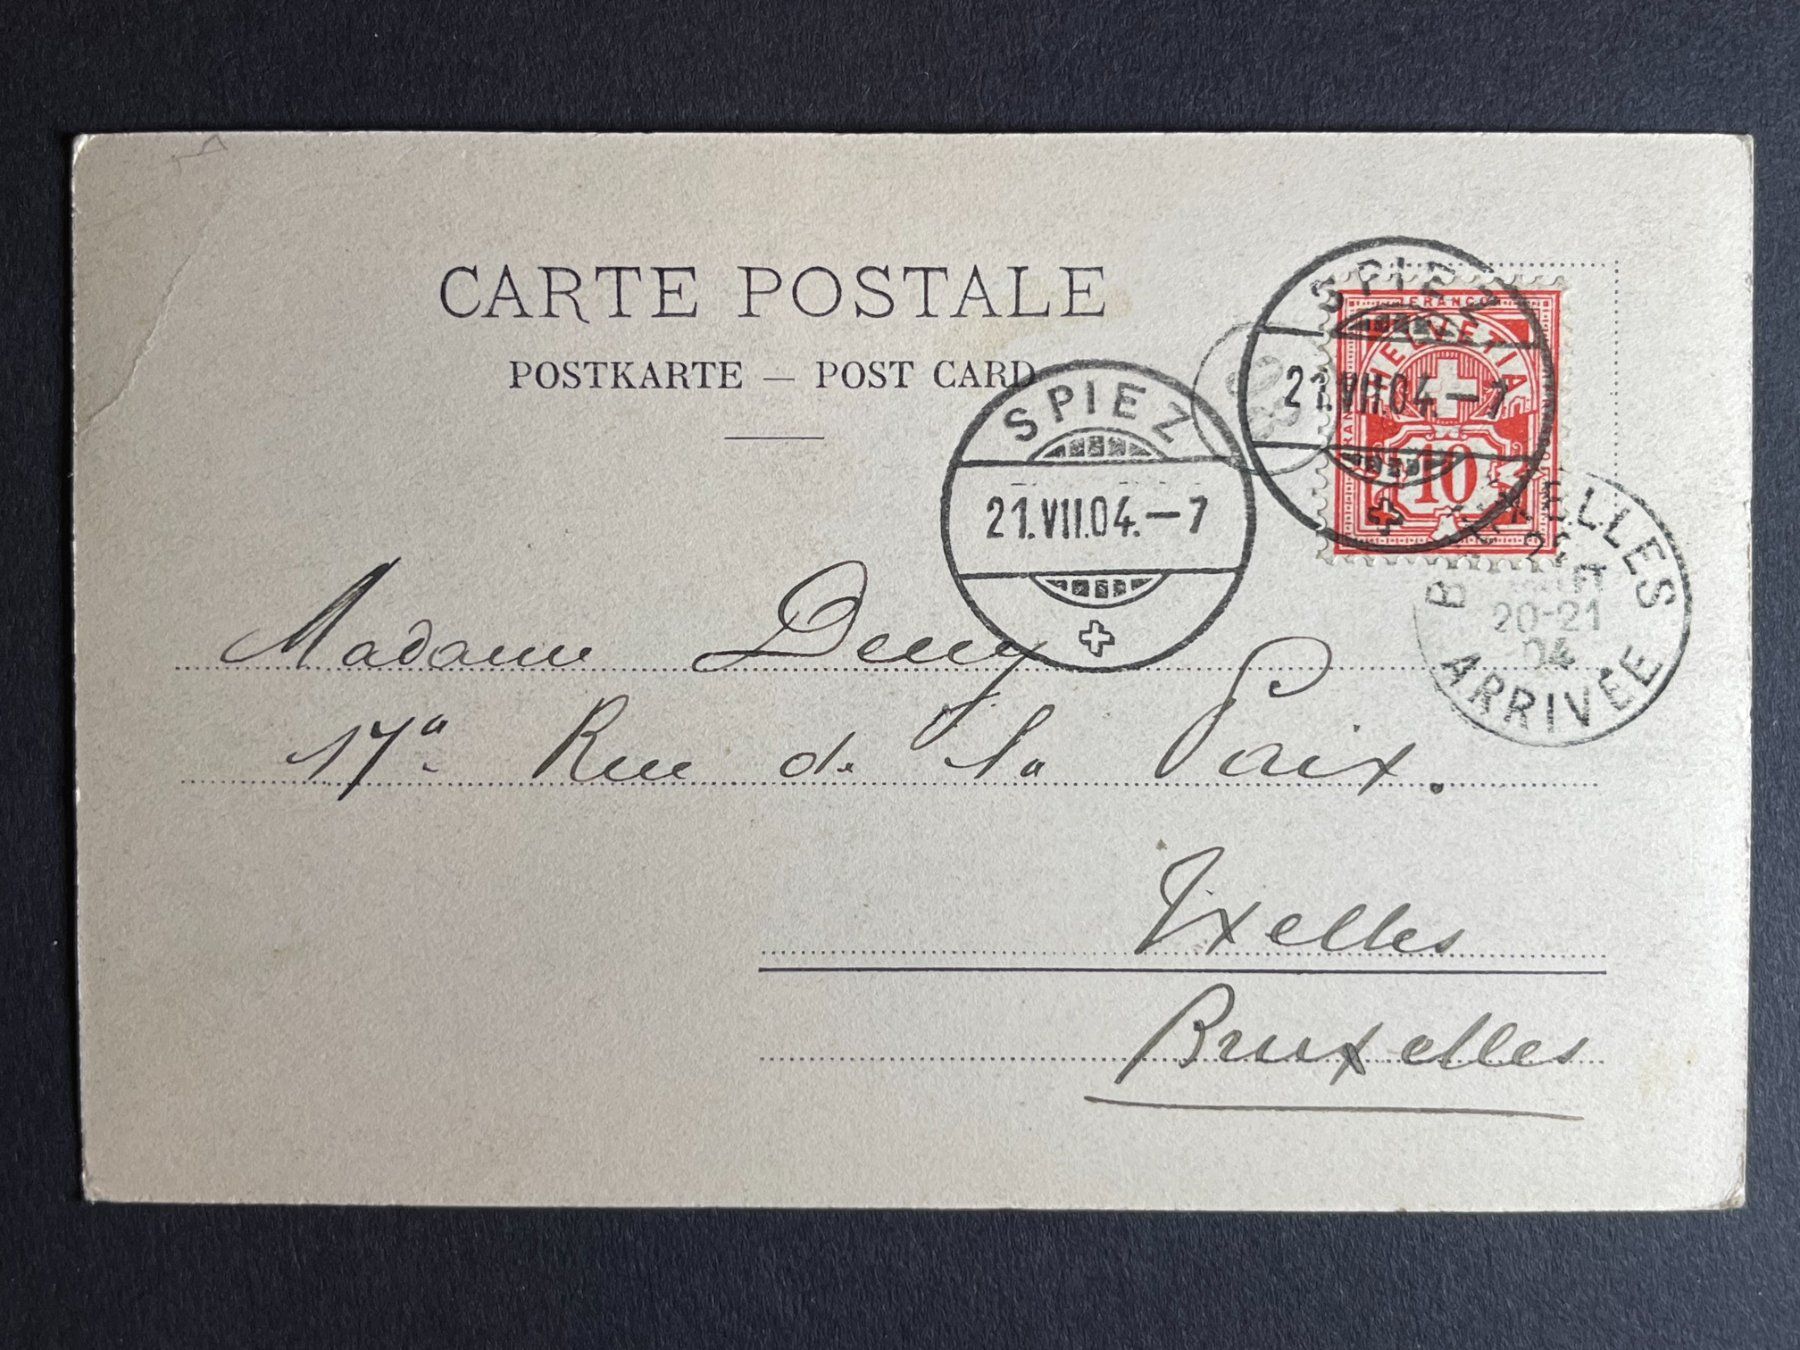 CARTE POSTALE
POSTKARTE — POST CARD
SPIEZ
21.VII.04.—7
SPIEZ
21.VII.04.—7
FRANCO
HELVETIA
10
BRUXELLES
20-21
04
ARRIVÉE
Madame
17a Rue de la Paix.
Ixelles
Bruxelles